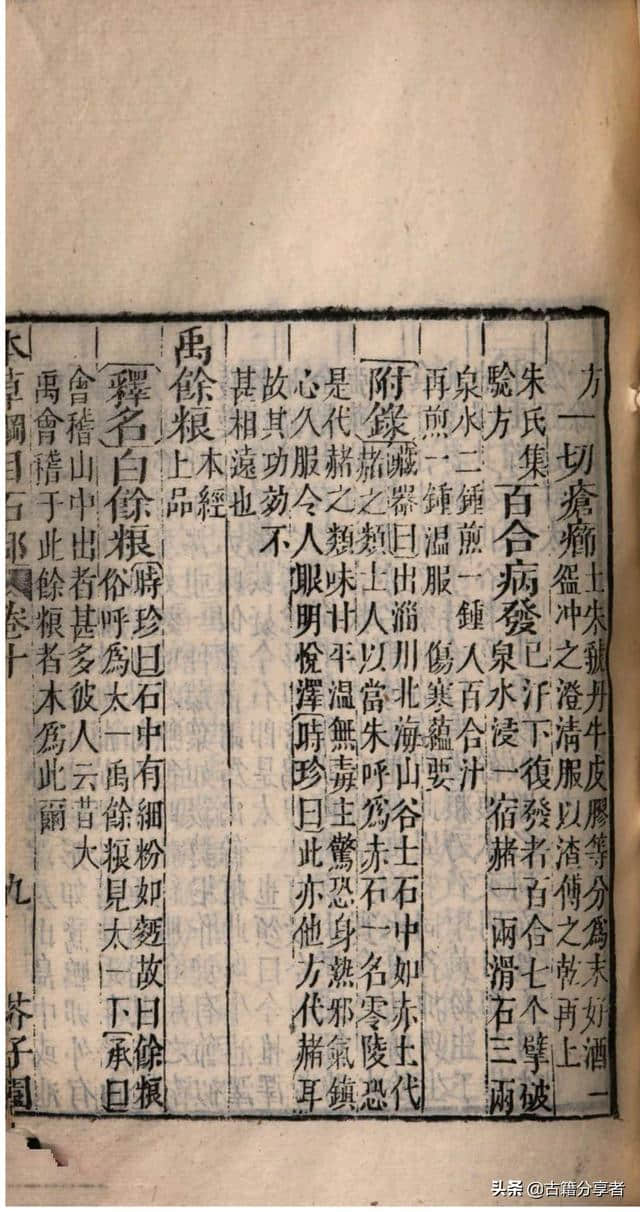 方一切瘡癤土朱虢丹牛皮膠等分爲末好酒一
冲之澄清服以渣傅之乾再上
朱氏集
驗方
百合病發已汗下復發者百合七个擘破
泉水浸一宿赭一兩滑石三兩
泉水二鍾煎一鍾人百合汁
再煎一鍾温服 傷寒蘊要
附錄藏器曰出淄川北海山谷土石中如赤土代
赭之類土人以當朱呼爲赤石一名零陵恐
是代赭之類味甘平温無毒主驚恐身熱邪氣鎮
心久服令人眼明悅澤時珍曰此亦他方代赭耳
故其功効不
甚相遠也
禹餘粮本經
上品
釋名白餘粮時珍曰石中有細粉如麪故曰餘粮
俗呼爲太一禹餘粮見太一下承曰
會稽山中出者甚多彼人云昔大
禹會稽于此餘粮者本爲此爾
本草綱目石部 卷十 九 芥子園
头条@古籍分享者